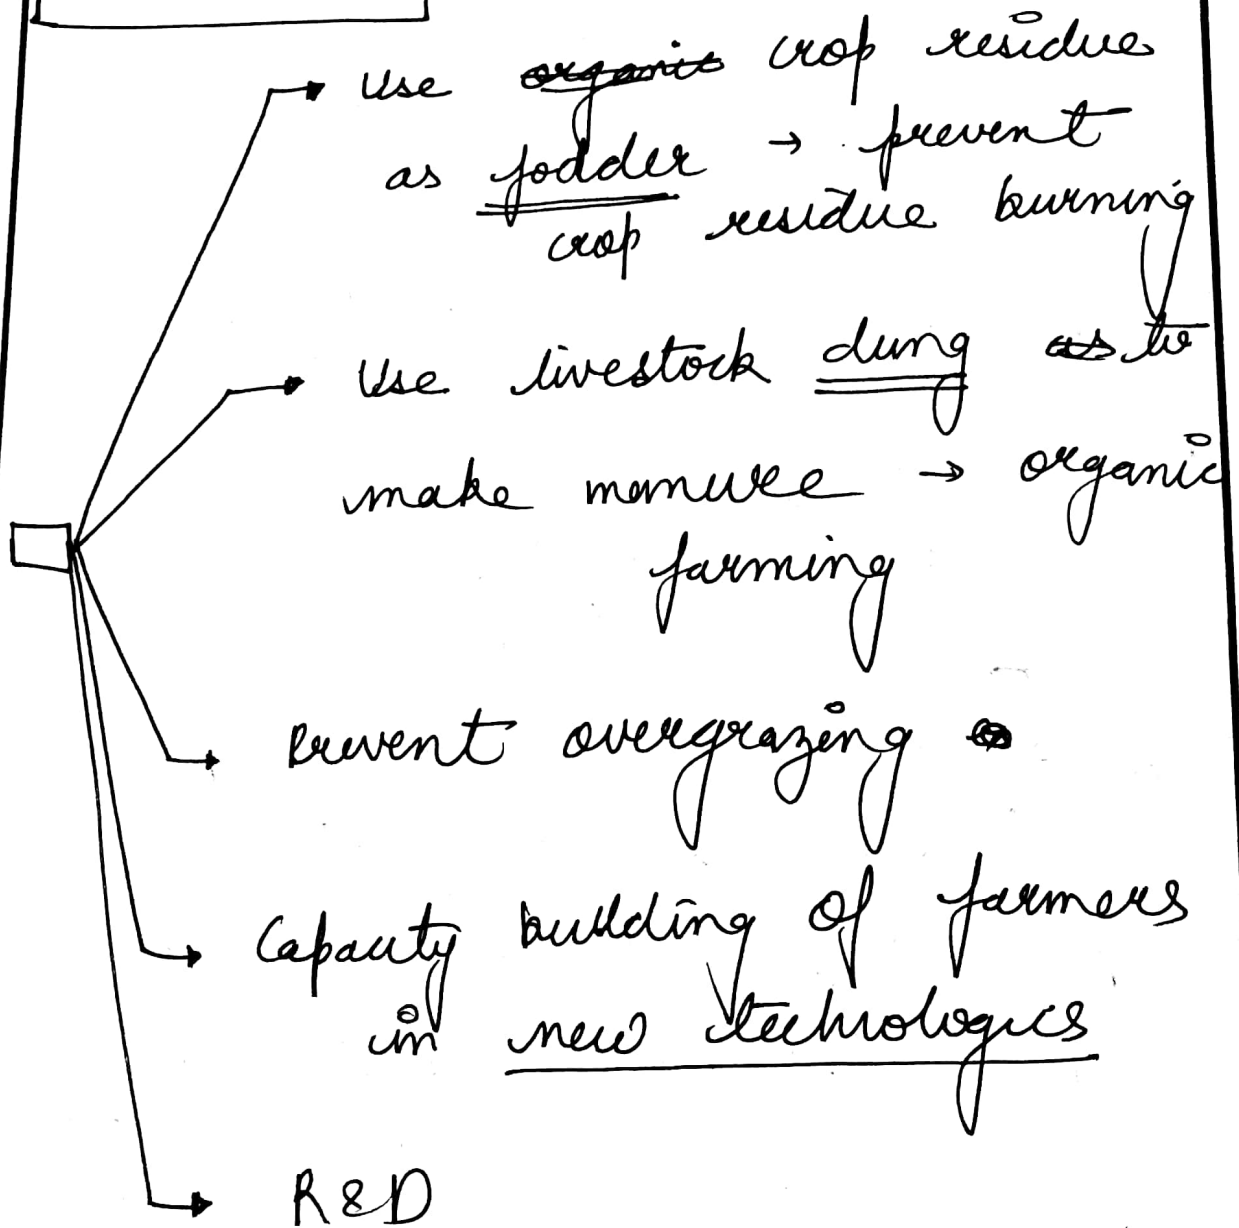 Use organic crop residue
as fodder → prevent
crop residue burning
Use livestock dung as to
make manure → organic
farming
Prevent overgrazing
Capacity building of farmers
in new technologies
R&D